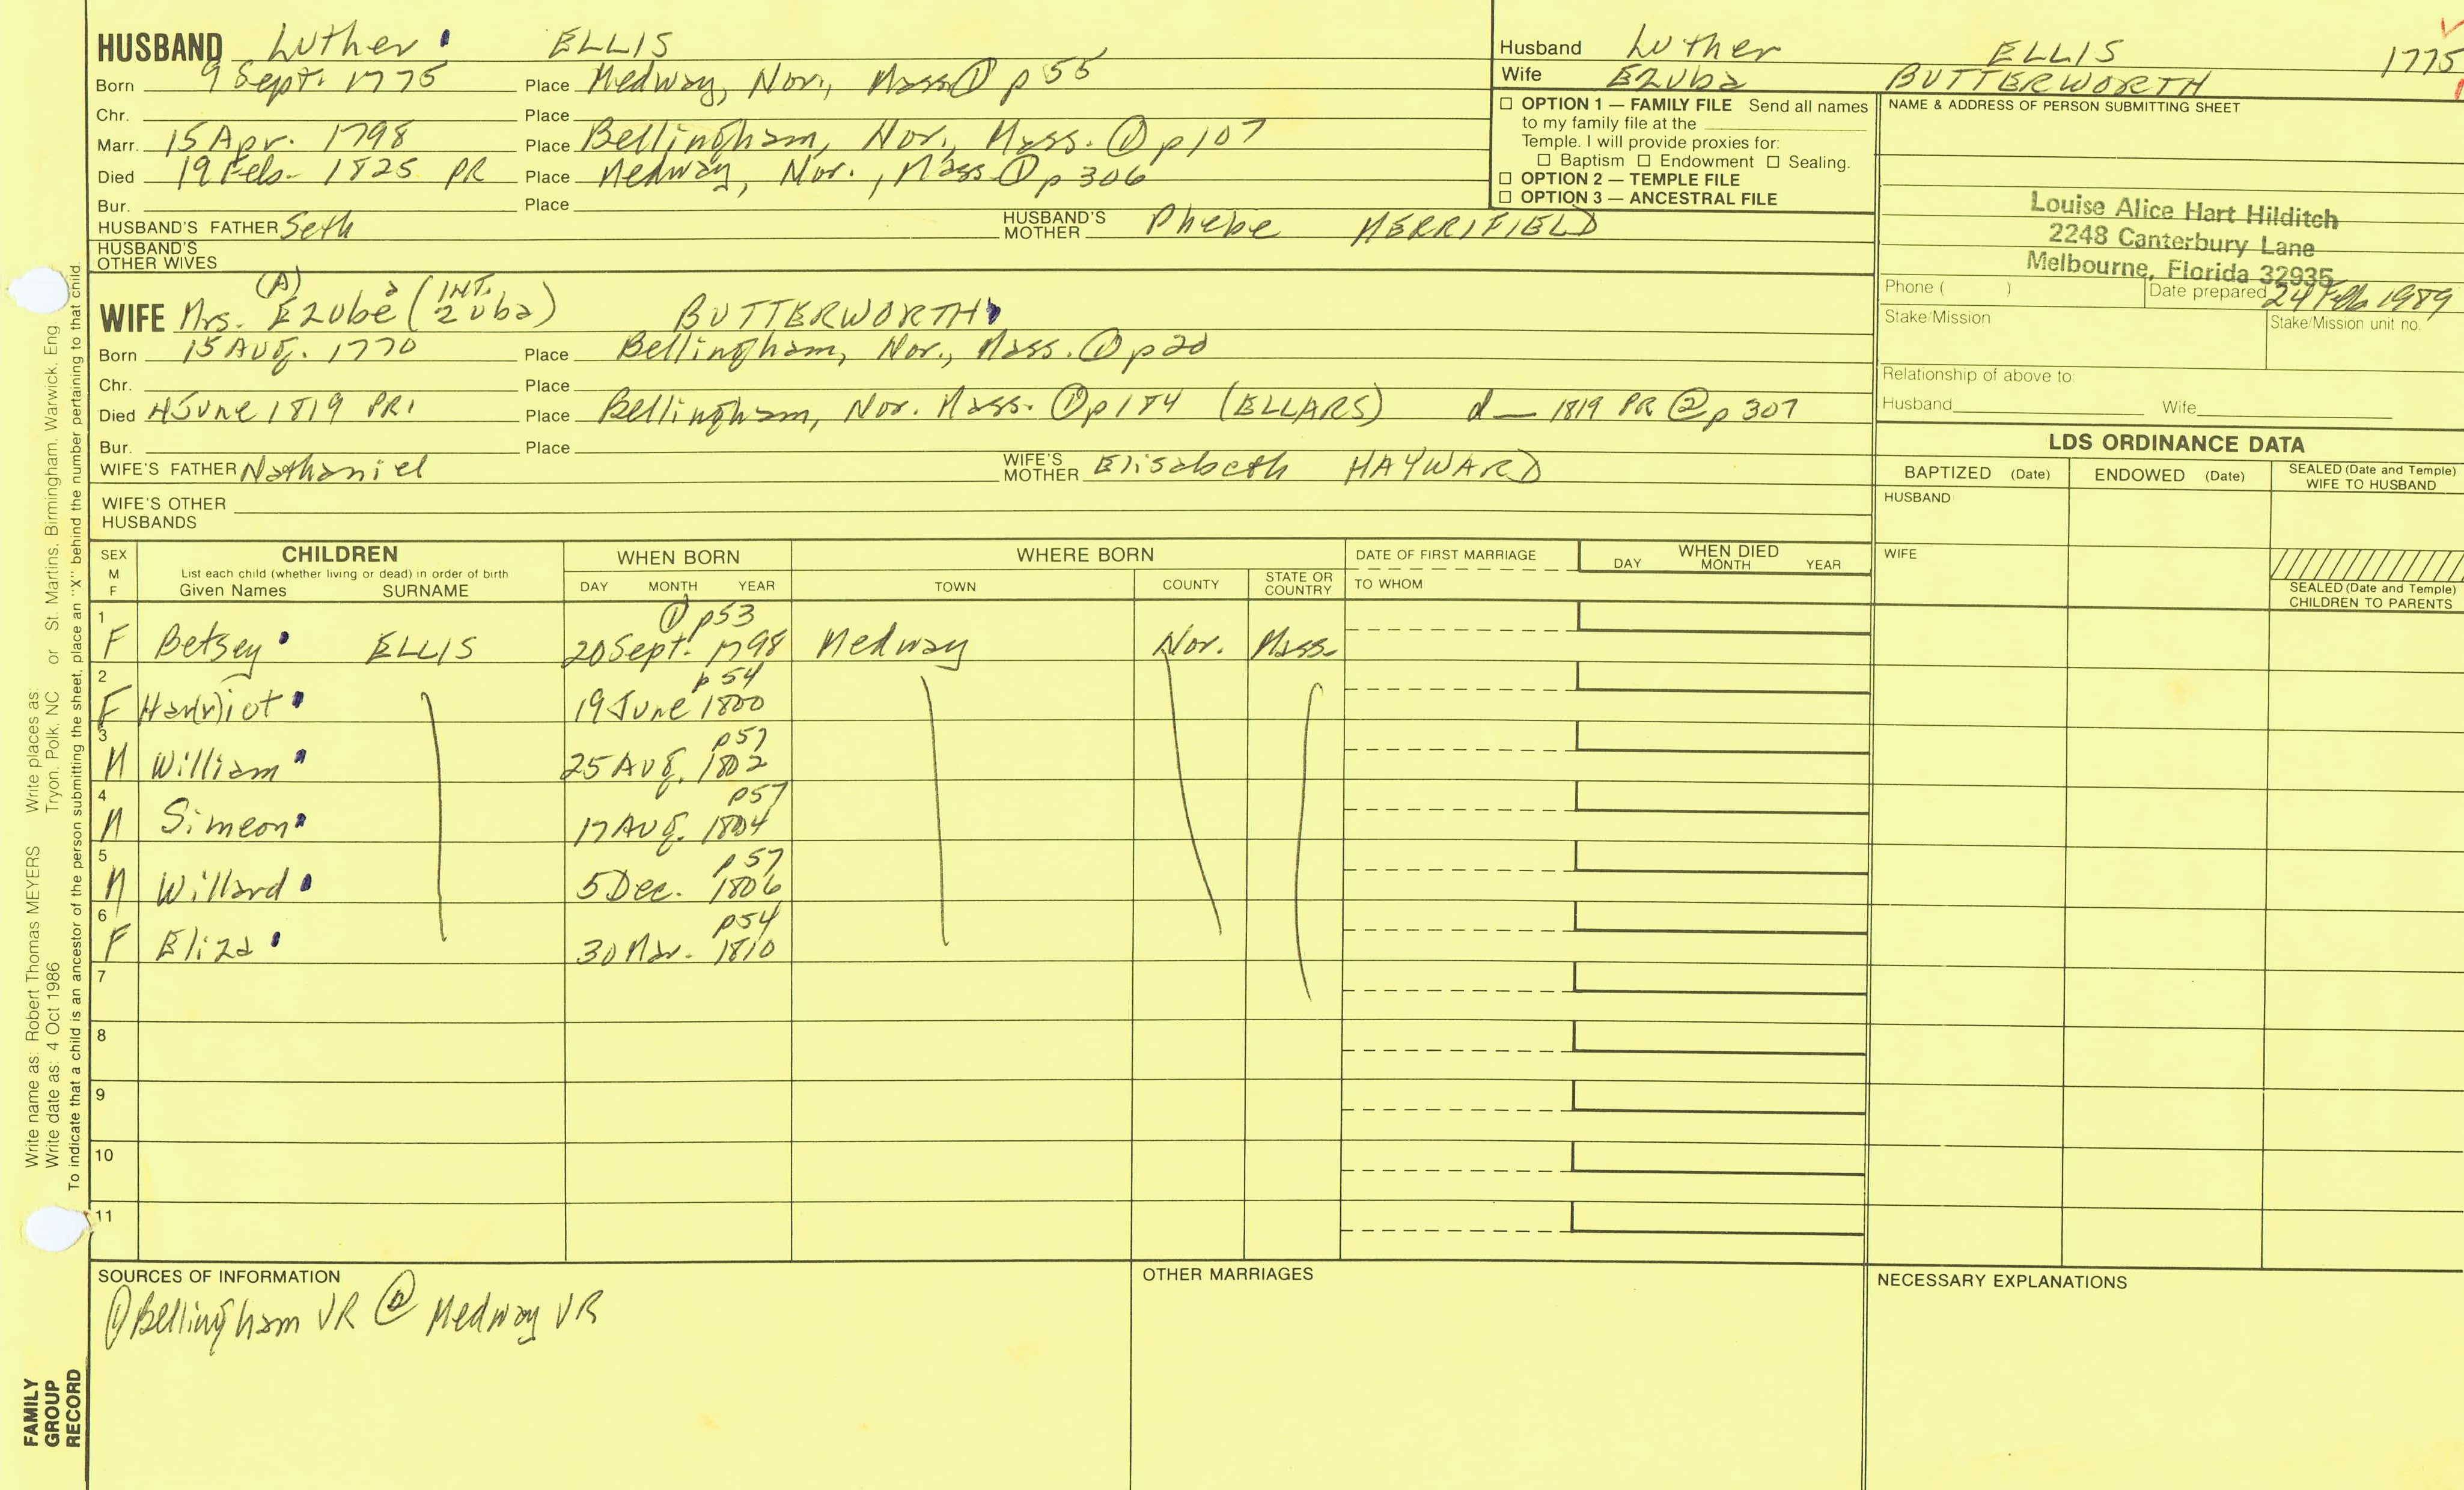 HUSBAND Luther ELLIS
Born 9 Sept. 1775 Place Medway, Nor., Mass ① p 55
Chr. Place
Marr. 15 Apr. 1798 Place Bellingham, Nor., Mass. ① p107
Died 19 Feb. 1825 PR Place Medway, Nor., Mass ① p 306
Bur. Place
HUSBAND'S FATHER Seth HUSBAND'S MOTHER Phebe MERRIFIELD
HUSBAND'S OTHER WIVES
(A) a INT.
WIFE Mrs. Ezube (Zuba) BUTTERWORTH
Born 15 Aug. 1770 Place Bellingham, Nor., Mass. ① p20
Chr. Place
Died 4 June 1819 PR1 Place Bellingham, Nor. Mass. ① p184 (ELLARS) d — 1819 PR ② p 307
Bur. Place
WIFE'S FATHER Nathaniel WIFE'S MOTHER Elisabeth HAYWARD
WIFE'S OTHER HUSBANDS
Husband Luther ELLIS 1775
Wife Ezuba BUTTERWORTH
☐ OPTION 1 — FAMILY FILE Send all names
to my family file at the
Temple. I will provide proxies for:
☐ Baptism ☐ Endowment ☐ Sealing.
☐ OPTION 2 — TEMPLE FILE
☐ OPTION 3 — ANCESTRAL FILE
NAME & ADDRESS OF PERSON SUBMITTING SHEET
Louise Alice Hart Hilditch
2248 Canterbury Lane
Melbourne, Florida 32935
Phone ( ) Date prepared 24 Feb 1989
Stake/Mission Stake/Mission unit no.
Relationship of above to:
Husband Wife
LDS ORDINANCE DATA
BAPTIZED (Date) ENDOWED (Date) SEALED (Date and Temple) WIFE TO HUSBAND
HUSBAND
WIFE
SEALED (Date and Temple)
CHILDREN TO PARENTS
SEX M F CHILDREN WHEN BORN WHERE BORN DATE OF FIRST MARRIAGE WHEN DIED
List each child (whether living or dead) in order of birth
Given Names SURNAME DAY MONTH YEAR TOWN COUNTY STATE OR COUNTRY TO WHOM DAY MONTH YEAR
① p53
1 F Betsey ELLIS 20 Sept. 1798 Medway Nor. Mass.
p 54
2 F Har(r)iot 19 June 1800
p57
3 M William 25 Aug. 1802
p57
4 M Simeon 17 Aug. 1804
p57
5 M Willard 5 Dec. 1806
p54
6 F Eliza 30 Mar. 1810
7
8
9
10
11
SOURCES OF INFORMATION
① Bellingham VR ② Medway VR
OTHER MARRIAGES
NECESSARY EXPLANATIONS
Write name as: Robert Thomas MEYERS Write places as:
Write date as: 4 Oct 1986 Tryon, Polk, NC or St. Martins, Birmingham, Warwick, Eng
To indicate that a child is an ancestor of the person submitting the sheet, place an "X" behind the number pertaining to that child.
FAMILY
GROUP
RECORD